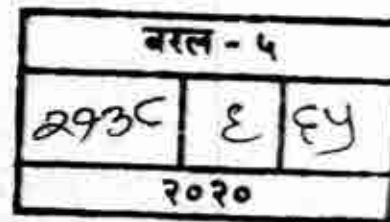 बरल - ५
२१३८ ६ ६५
२०२०